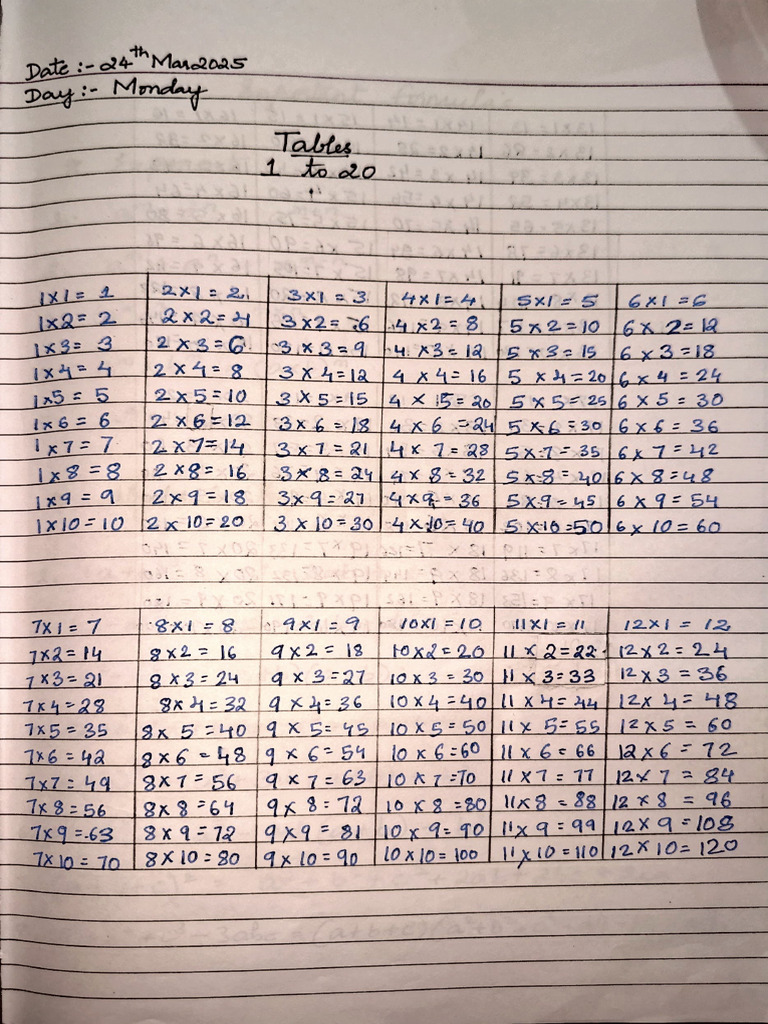 Date :- 24th Mar 2025
Day :- Monday
Tables
1 to 20
1x1 = 1 2x1 = 2 3x1 = 3 4x1 = 4 5x1 = 5 6x1 = 6
1x2 = 2 2x2 = 4 3x2 = 6 4x2 = 8 5x2 = 10 6x2 = 12
1x3 = 3 2x3 = 6 3x3 = 9 4x3 = 12 5x3 = 15 6x3 = 18
1x4 = 4 2x4 = 8 3x4 = 12 4x4 = 16 5x4 = 20 6x4 = 24
1x5 = 5 2x5 = 10 3x5 = 15 4x15 = 20 5x5 = 25 6x5 = 30
1x6 = 6 2x6 = 12 3x6 = 18 4x6 = 24 5x6 = 30 6x6 = 36
1x7 = 7 2x7 = 14 3x7 = 21 4x7 = 28 5x7 = 35 6x7 = 42
1x8 = 8 2x8 = 16 3x8 = 24 4x8 = 32 5x8 = 40 6x8 = 48
1x9 = 9 2x9 = 18 3x9 = 27 4x9 = 36 5x9 = 45 6x9 = 54
1x10 = 10 2x10 = 20 3x10 = 30 4x10 = 40 5x10 = 50 6x10 = 60
7x1 = 7 8x1 = 8 9x1 = 9 10x1 = 10 11x1 = 11 12x1 = 12
7x2 = 14 8x2 = 16 9x2 = 18 10x2 = 20 11x2 = 22 12x2 = 24
7x3 = 21 8x3 = 24 9x3 = 27 10x3 = 30 11x3 = 33 12x3 = 36
7x4 = 28 8x4 = 32 9x4 = 36 10x4 = 40 11x4 = 44 12x4 = 48
7x5 = 35 8x5 = 40 9x5 = 45 10x5 = 50 11x5 = 55 12x5 = 60
7x6 = 42 8x6 = 48 9x6 = 54 10x6 = 60 11x6 = 66 12x6 = 72
7x7 = 49 8x7 = 56 9x7 = 63 10x7 = 70 11x7 = 77 12x7 = 84
7x8 = 56 8x8 = 64 9x8 = 72 10x8 = 80 11x8 = 88 12x8 = 96
7x9 = 63 8x9 = 72 9x9 = 81 10x9 = 90 11x9 = 99 12x9 = 108
7x10 = 70 8x10 = 80 9x10 = 90 10x10 = 100 11x10 = 110 12x10 = 120